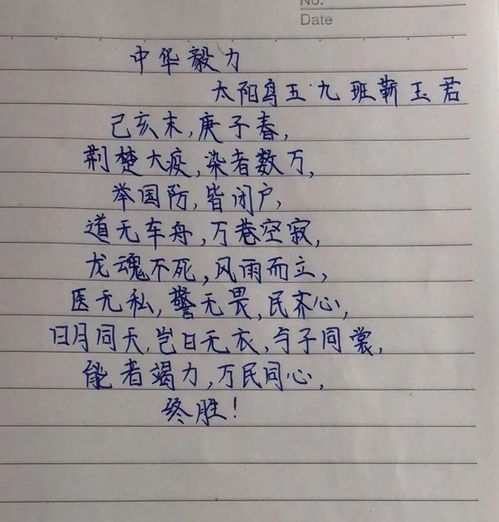 No.
Date
中华毅力
太阳鸟五·九班靳玉君
己亥末,庚子春,
荆楚大疫,染者数万,
举国防,皆闭户,
道无车舟,万巷空寂,
龙魂不死,风雨而立,
医无私,警无畏,民齐心,
日月同天,岂曰无衣,与子同裳,
能者竭力,万民同心,
终胜!